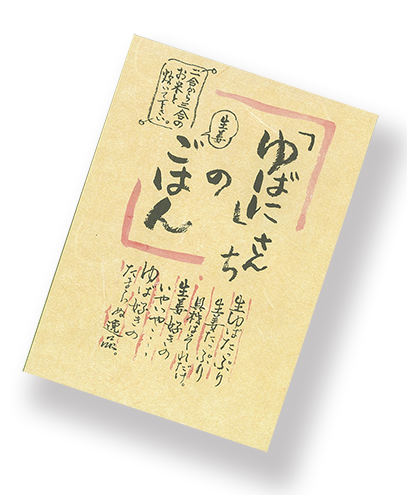 「ゆばに」さんち
の
生姜
ごはん
二合から三合の
お米と
炊いて下さい。
生ゆばたっぷり
生姜たっぷり
具材はそれだけ。
生姜好きの
いやいや…
ゆば好きの
たまらぬ逸品。